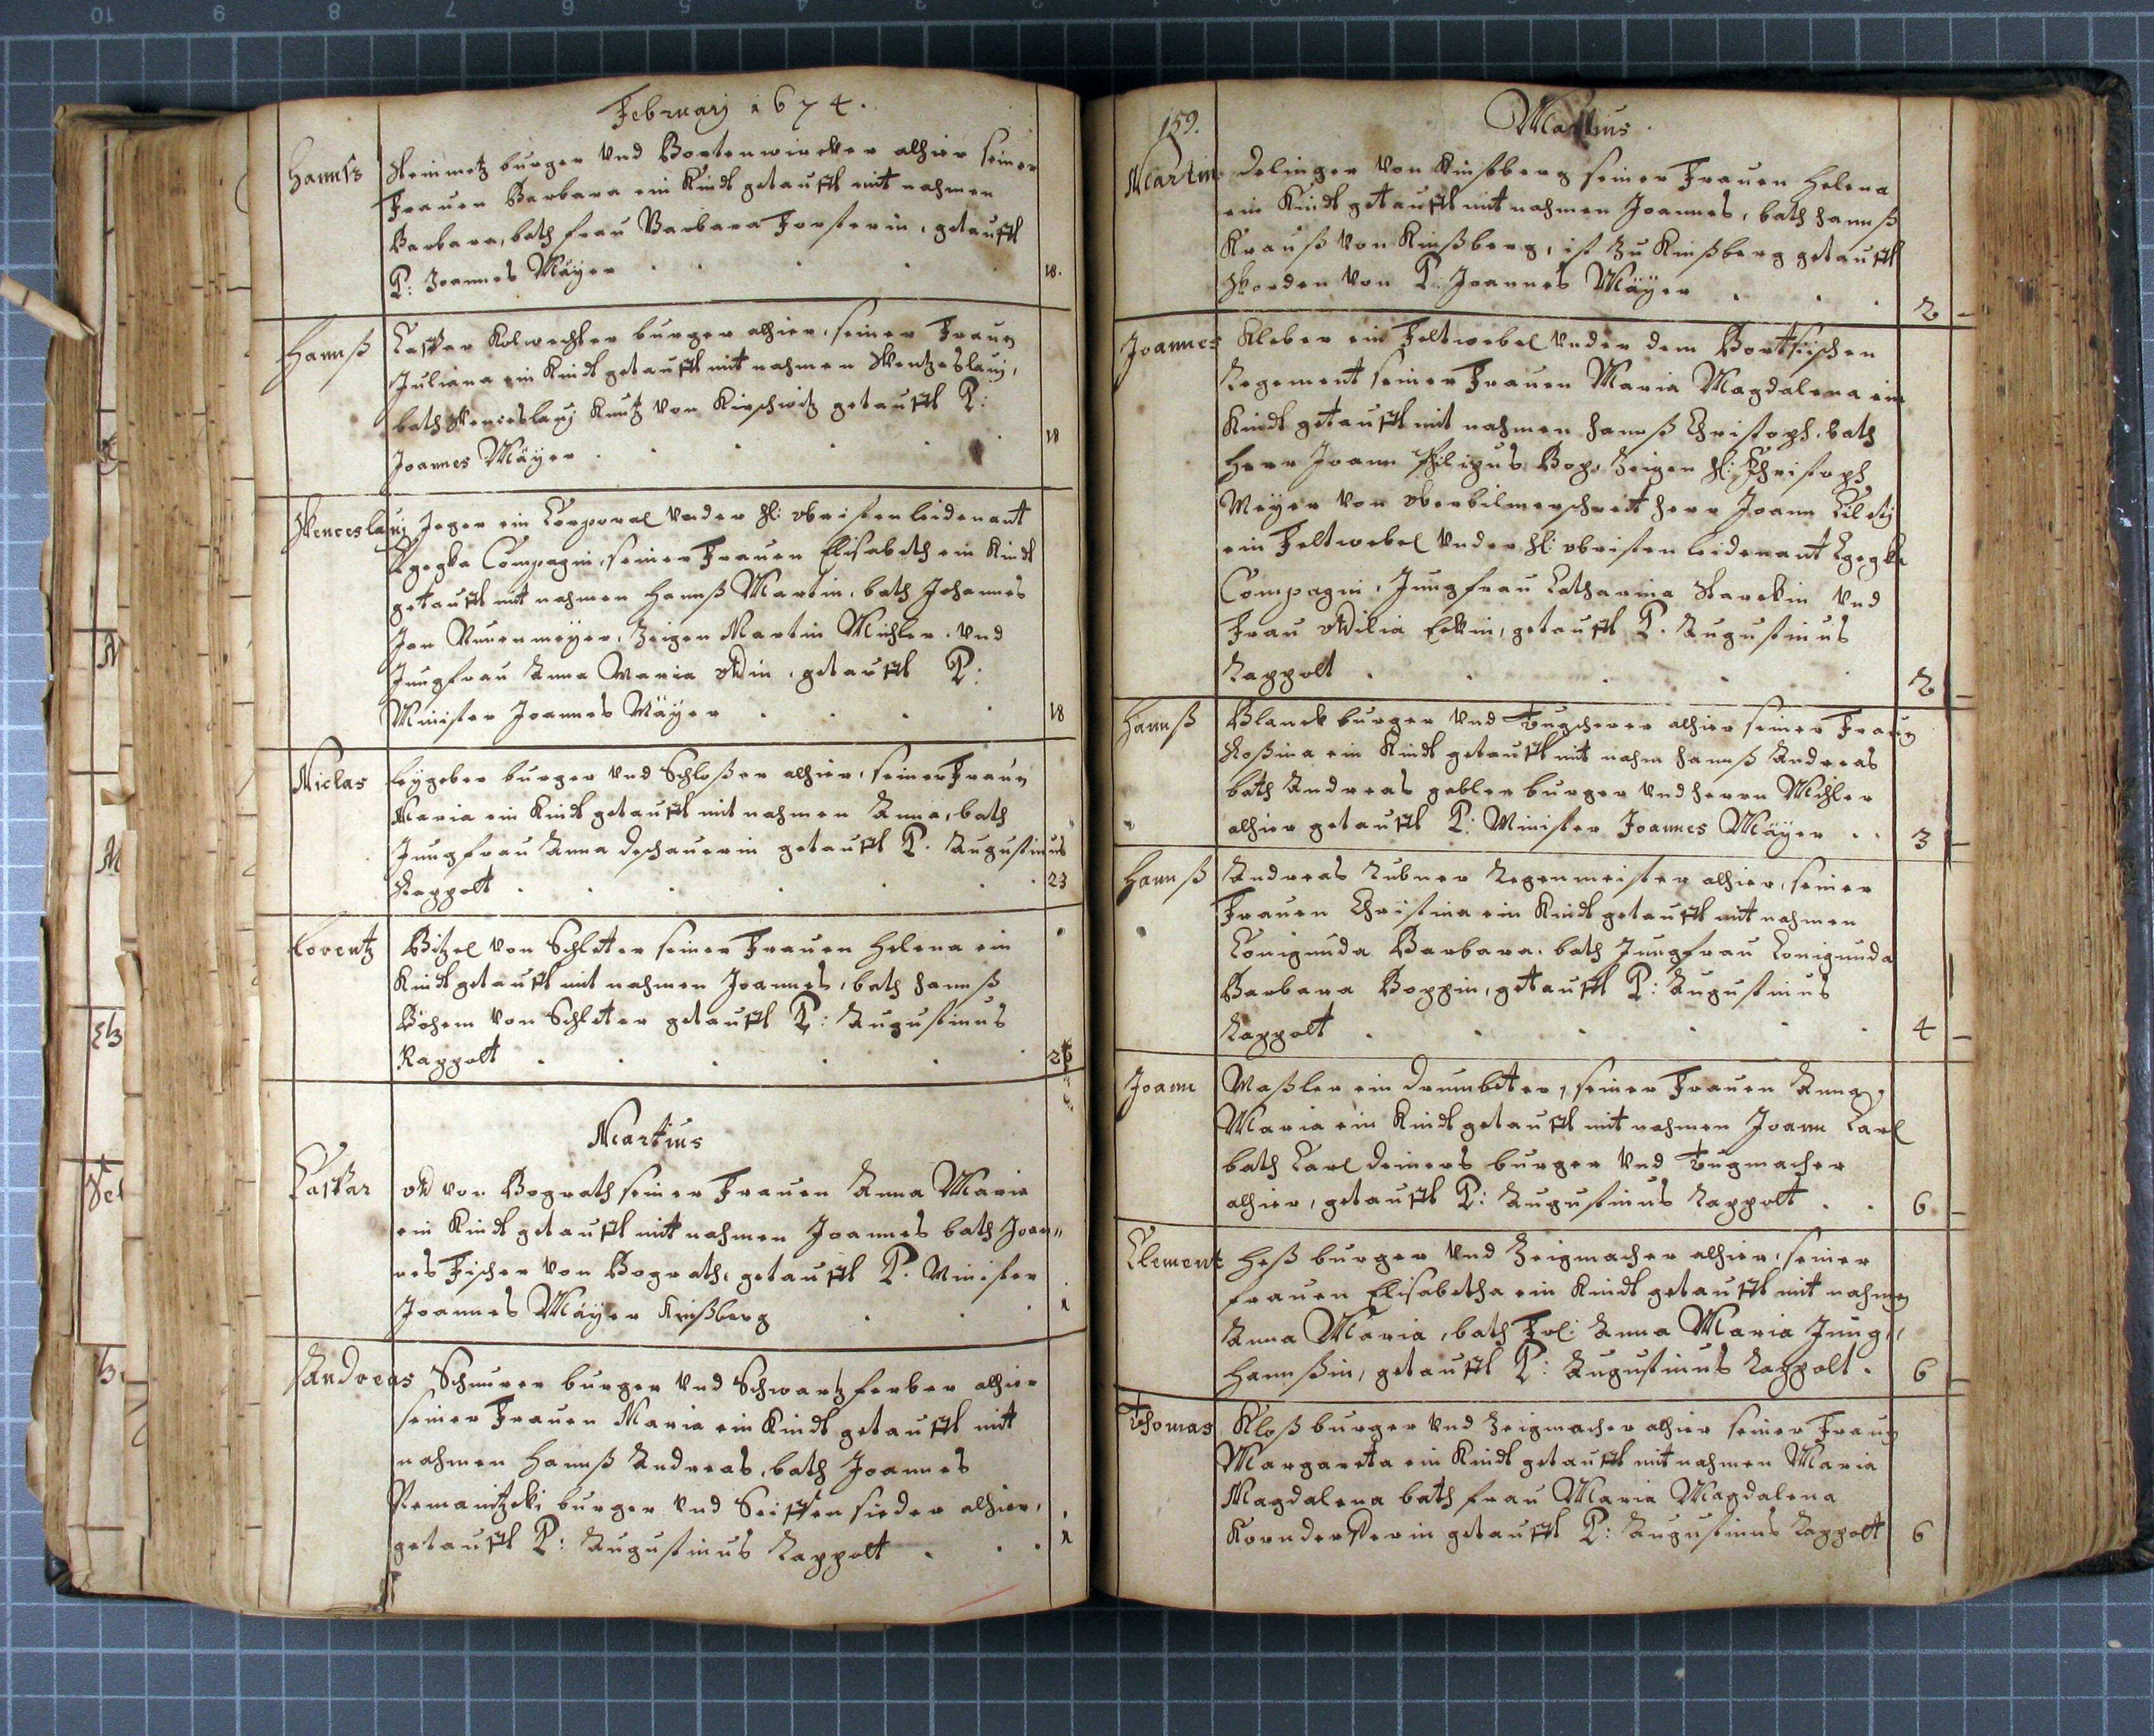 Februarj 1674.
Hannß Steinmetz burger Vnd Bortenwircker alhier seiner
Frauen Barbara ein Kindt getaufft mit nahmen
Barbara, bath frau Barbara Forsterin, getaufft
P: Joannes Mäyer . . . . 18.
Hannß Casper Kolwechter burger alhier, seiner Frauen
Juliana ein Kindt getaufft mit nahmen Wentzeslauj,
bath Wenceslauj Kuntz von Kirschwitz getaufft P:
Joannes Mäyer . . . . 18
Wenceslauj Jeger ein Corporal Vnder H: obristenleidenant
Compagni, seiner Frauen Elisabeth ein Kindt
getaufft mit nahmen Hannß Martin, bath Johannes
Jan Zeigen Martin Michler. Vnd
Jungfrau Anna Maria Ottin, getaufft P:
Minister Joannes Mäyer . . . . 18
Niclas Leygeber burger Vnd Schloßer alhier, seiner Frauen
Maria ein Kindt getaufft mit nahmen Anna, bath
Jungfrau Anna Deschauerin getaufft P. Augustinus
Rappolt . . . . . 23
Lorentz Bitzel von Schleter seiner Frauen Helena ein
Kindt getaufft mit nahmen Joannes, bath Hannß
Böhem von Schleter getaufft P: Augustinus
Rappolt . . . . .
Martius
Caspar Ott von Bograth seiner Frauen Anna Maria
ein Kindt getaufft mit nahmen Joannes bath Joan„
nes Fischer von Bograth, getaufft P. Minister
Joannes Mäyer Kinßberg . . 1
Andreas Schnurer burger Vnd Schwartzferber alhier
seiner Frauen Maria ein Kindt getaufft mit
nahmen Hannß Andreas, bath Joannes
burger Vnd Seiffensieder alhier,
getaufft P: Augustinus Rappolt . . . 1
159.
Martius.
Martin Delinger von Kinßberg seiner Frauen Helena
ein Kindt getaufft mit nahmen Joannes, bath Hannß
Krauß von Kinßberg, ist Zu Kinßberg getaufft
Worden von P. Joannes Mäyer . . . 2
Joannes Kleber ein Feltwebel Vnder dem
Regement seiner Frauen Maria Magdalena ein
Kindt getaufft mit nahmen Hannß Christoph, bath
Herr Joann Philipus Bop, Zeigen H: Christoph
Meyer von Herr Joann
ein Feltwebel Vnder H: obristenleidenant
Compagni, Jungfrau Catharina Starckin Vnd
Frau Ottilia Eckin, getaufft P. Augustinus
Rappolt . . . . . 2
Hannß Blanck burger Vnd Tugscherer alhier seiner Frauen
Roßina ein Kindt getaufft mit nahm Hannß Andreas
bath Andreas gabler burger Vnd herrn Mihler
alhier getaufft P: Minister Joannes Mäyer . . 3
Hannß Andreas Rubner Regenmeister alhier, seiner
Frauen Christina ein Kindt getaufft mit nahmen
Conigunda Barbara. bath Jungfrau Conigunda
Barbara Boppin, getaufft P: Augustinus
Rappolt . . . . . 4
Joann Maßler ein Drumbeter, seiner Frauen Anna
Maria ein Kindt getaufft mit nahmen Joann Carl
bath Carl Deiners burger Vnd Tugmacher
alhier, getaufft P: Augustinus Rappolt . . 6
Clement Heß burger Vnd Zeigmacher alhier, seiner
Frauen Elisabetha ein Kindt getaufft mit nahmen
Anna Maria, bath Frl: Anna Maria Jung„
hannßin, getaufft P: Augustinus Rappolt. 6
Thomas Kloß burger Vnd Zeigmacher alhier seiner Frauen
Margareta ein Kindt getaufft mit nahmen Maria
Magdalena bath frau Maria Magdalena
Kornderfferin getaufft P: Augustinus Rappolt 6